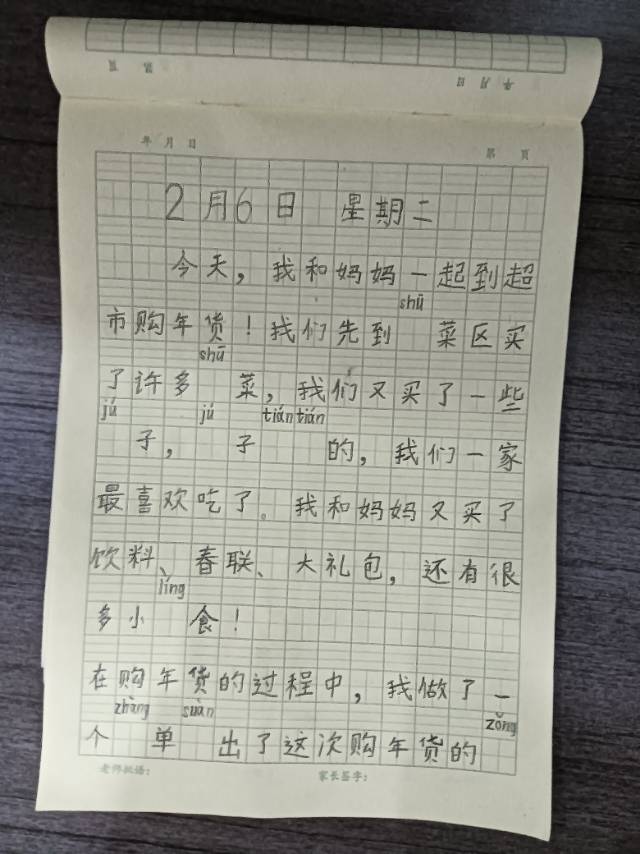 年 月 日 第 页
年 月 日 第 页
2月6日 星期二
今天,我和妈妈一起到超
shū
市购年货!我们先到 菜区买
shū
了许多 菜,我们又买了一些
jú jú tián tián
子, 子 的,我们一家
最喜欢吃了。我和妈妈又买了
饮料、春联、大礼包,还有很
líng
多小 食!
在购年货的过程中,我做了一
zhàng suàn zǒng
个 单 出了这次购年货的
老师批语: 家长签字: